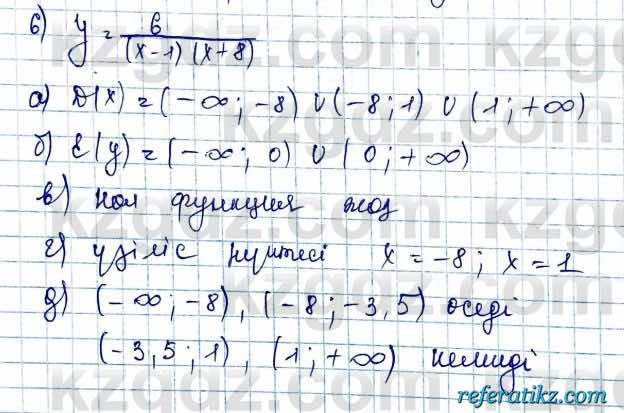 в) y = 6 / (x-1)(x+8)
а) D(x) = (-∞; -8) ∪ (-8; 1) ∪ (1; +∞)
б) E(y) = (-∞; 0) ∪ (0; +∞)
в) нол функция жоқ
г) үзіліс нүктесі x = -8; x = 1
д) (-∞; -8), (-8; -3,5) өседі
(-3,5; 1), (1; +∞) кемиді
referatikz.com